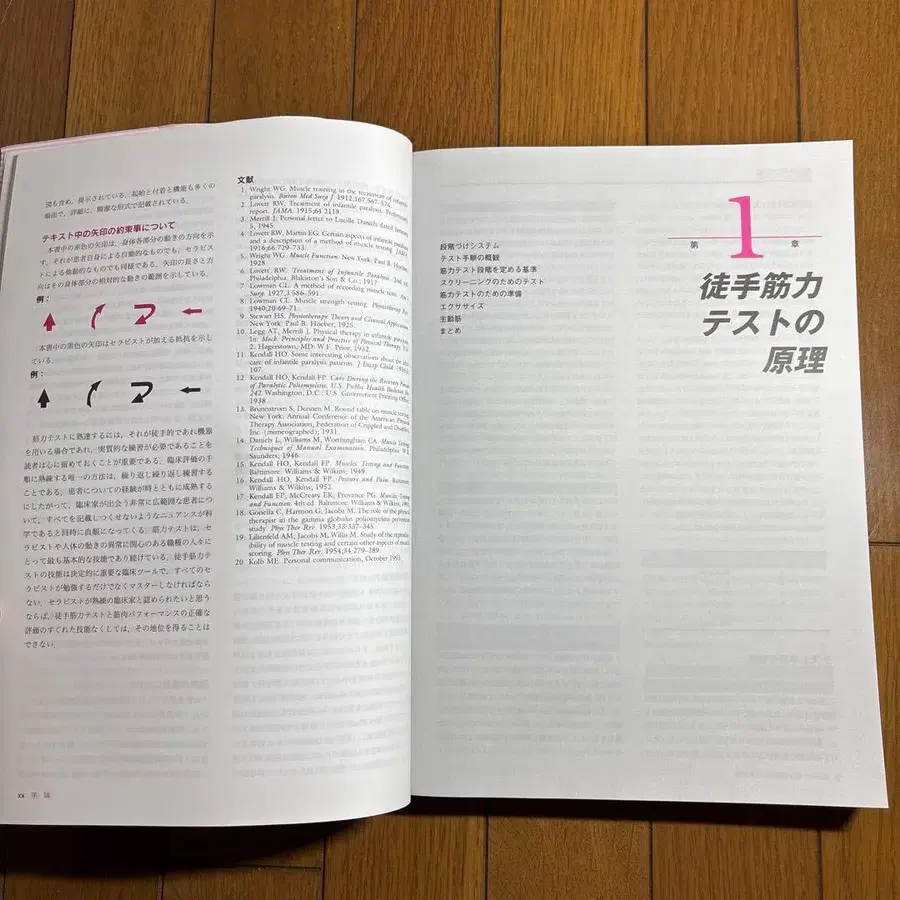 図も含め，提示されている．起始と付着と機能も多くの
場面で，詳細に，簡潔な形式で記載されている．
テキスト中の矢印の約束事について
本書中の赤色の矢印は，身体各部分の動きの方向を示
す．それが患者自身による自動的なものでも，セラピス
トによる他動的なものでも同様である．矢印の長さと方
向はその身体部分の相対的な動きの範囲を示している．
例：
本書中の黒色の矢印はセラピストが加える抵抗を示し
ている．
例：
筋力テストに熟達するには，それが徒手的であれ機器
を用いる場合であれ，実質的な練習が必要であることを
読者は心に留めておくことが重要である．臨床評価の手
順に熟練する唯一の方法は，繰り返し繰り返し練習する
ことである．患者についての経験が時とともに成熟する
にしたがって，臨床家が出会う非常に広範囲な患者につ
いて，すべてを記載しつくせないようなニュアンスが科
学であると同時に直観になってくる．筋力テストは，セ
ラピストや人体の動きの異常に関心のある職種の人々に
とって最も基本的な技能であり続けている．徒手筋力テ
ストの技能は決定的に重要な臨床ツールで，すべてのセ
ラピストが勉強するだけでなくマスターしなければなら
ない．セラピストが熟練の臨床家と認められたいと思う
ならば，徒手筋力テストと筋肉パフォーマンスの正確な
評価のすぐれた技能なくしては，その地位を得ることは
できない．
xx 序 論
文献
1. Wright WG. Muscle training in the treatment of infantile
paralysis. Boston Med Surg J 1912;167:567–574.
2. Lovett RW. Treatment of infantile paralysis. Preliminary
report. JAMA. 1915;64:2118.
3. Merrill J. Personal letter to Lucille Daniels dated January
5, 1945.
4. Lovett RW, Martin EG. Certain aspects of infantile paralysis
and a description of a method of muscle testing. JAMA.
1916;66:729–733.
5. Wright WG. Muscle Function. New York: Paul B. Hoeber,
1928.
6. Lovett RW. Treatment of Infantile Paralysis. 2nd ed.
Philadelphia: Blakiston's Son & Co.; 1917.
7. Lowman CL. A method of recording muscle tests. Am J
Surg. 1927;3:586–591.
8. Lowman CL. Muscle strength testing. Physiotherapy Rev
1940;20:69–71.
9. Stewart HS. Physiotherapy Theory and Clinical Application.
New York: Paul B. Hoeber, 1925.
10. Legg AT, Merrill J. Physical therapy in infantile paralysis.
In: Mock. Principles and Practice of Physical Therapy. Vol.
2. Hagerstown, MD: W.F. Prior, 1932.
11. Kendall HO. Some interesting observations about the after
care of infantile paralysis patients. J Excep Child. 1936;3:
107.
12. Kendall HO, Kendall FP. Care During the Recovery Period
of Paralytic Poliomyelitis. U.S. Public Health Bulletin No.
242. Washington, D.C.: U.S. Government Printing Office;
1938.
13. Brunnstrom S, Dennen M. Round table on muscle testing.
New York: Annual Conference of the American Physical
Therapy Association, Federation of Crippled and Disabled,
Inc. (mimeographed); 1931.
14. Daniels L, Williams M, Worthingham CA. Muscle Testing:
Techniques of Manual Examination. Philadelphia: W.B.
Saunders; 1946.
15. Kendall HO, Kendall FP. Muscles: Testing and Function.
Baltimore: Williams & Wilkins; 1949.
16. Kendall HO, Kendall FP. Posture and Pain. Baltimore:
Williams & Wilkins; 1952.
17. Kendall FP, McCreary EK, Provance PG. Muscles: Testing
and Function. 4th ed. Baltimore: Williams & Wilkins, 1993.
18. Gonella C, Harmon G, Jacobs M. The role of the physical
therapist in the gamma globulin poliomyelitis prevention
study. Phys Ther Rev. 1953;33:337–345.
19. Lilienfeld AM, Jacobs M, Willis M. Study of the reproduci-
bility of muscle testing and certain other aspects of muscle
scoring. Phys Ther Rev. 1954;34:279–289.
20. Kolb ME. Personal communication, October 1993.
第 1 章
徒手筋力
テストの
原理
段階づけシステム
テスト手順の概観
筋力テスト段階を定める基準
スクリーニングのためのテスト
筋力テストのための準備
エクササイズ
主動筋
まとめ